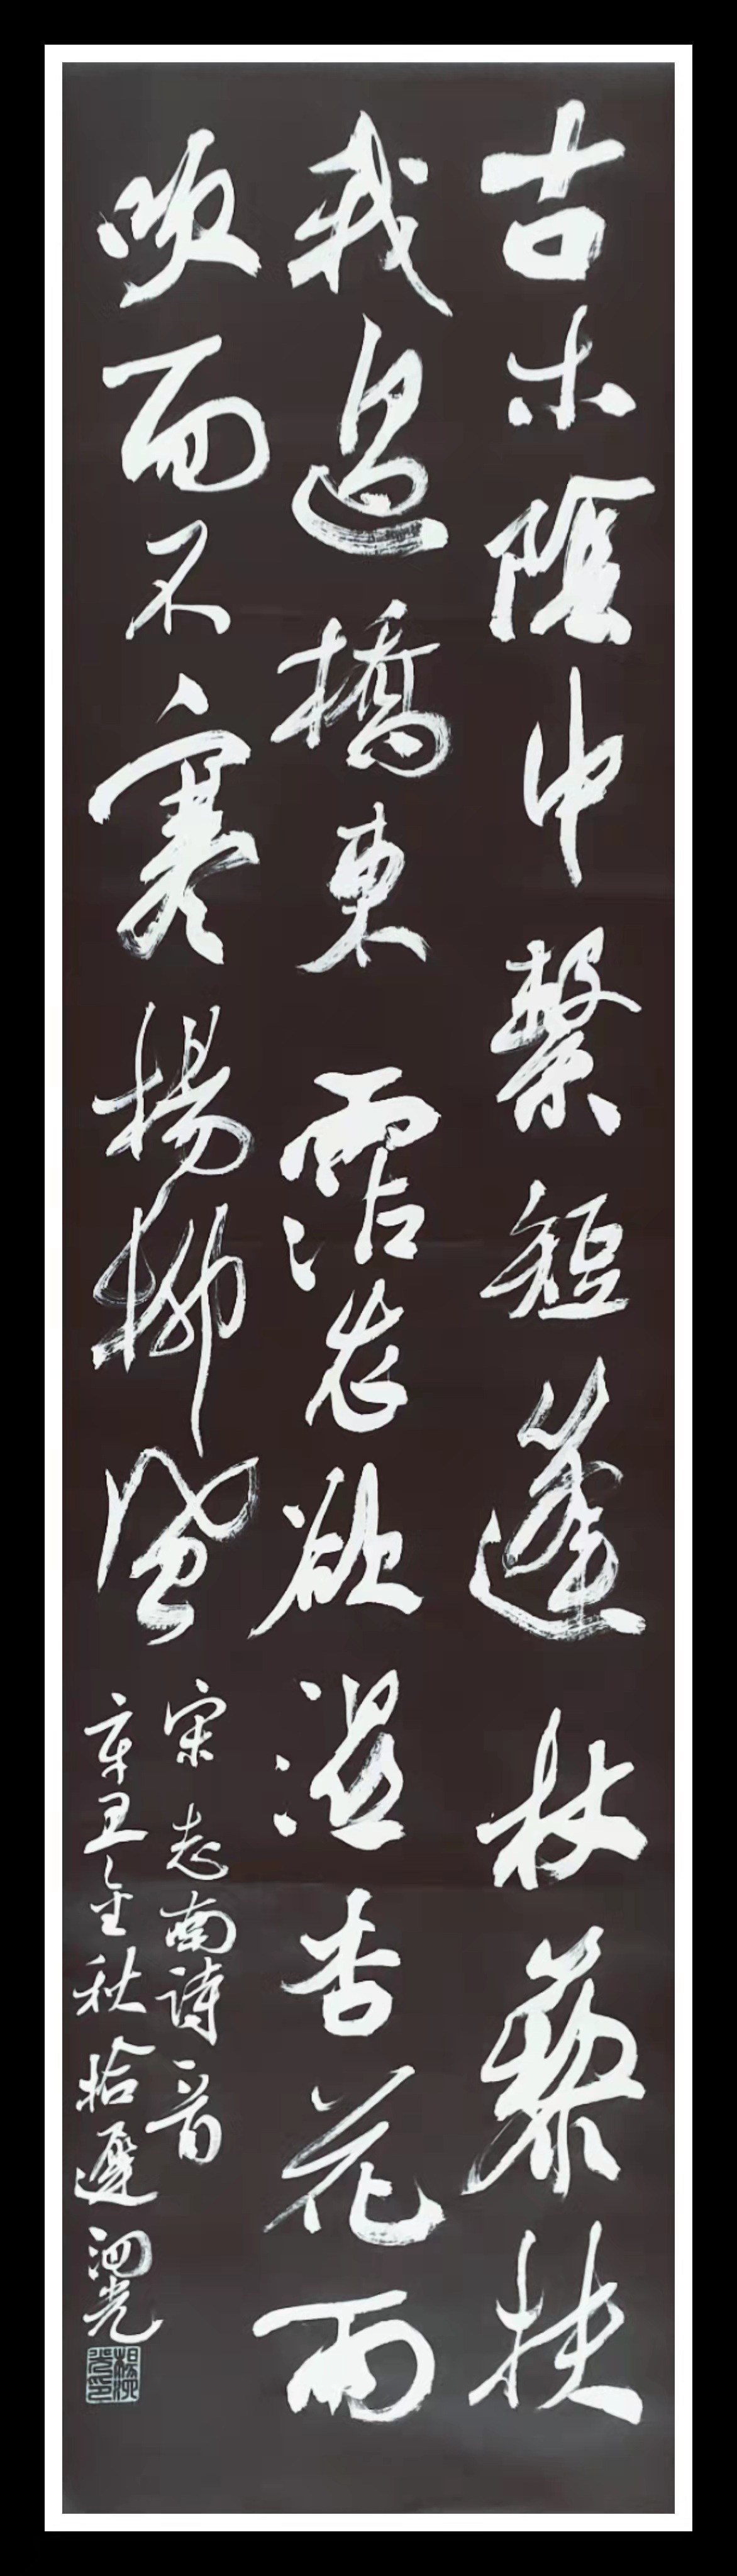 古木陰中繫短蓬杖藜扶
我過橋東霑衣欲濕杏花雨
吹面不寒楊柳風
宋志南詩一首
辛丑金秋拾遲